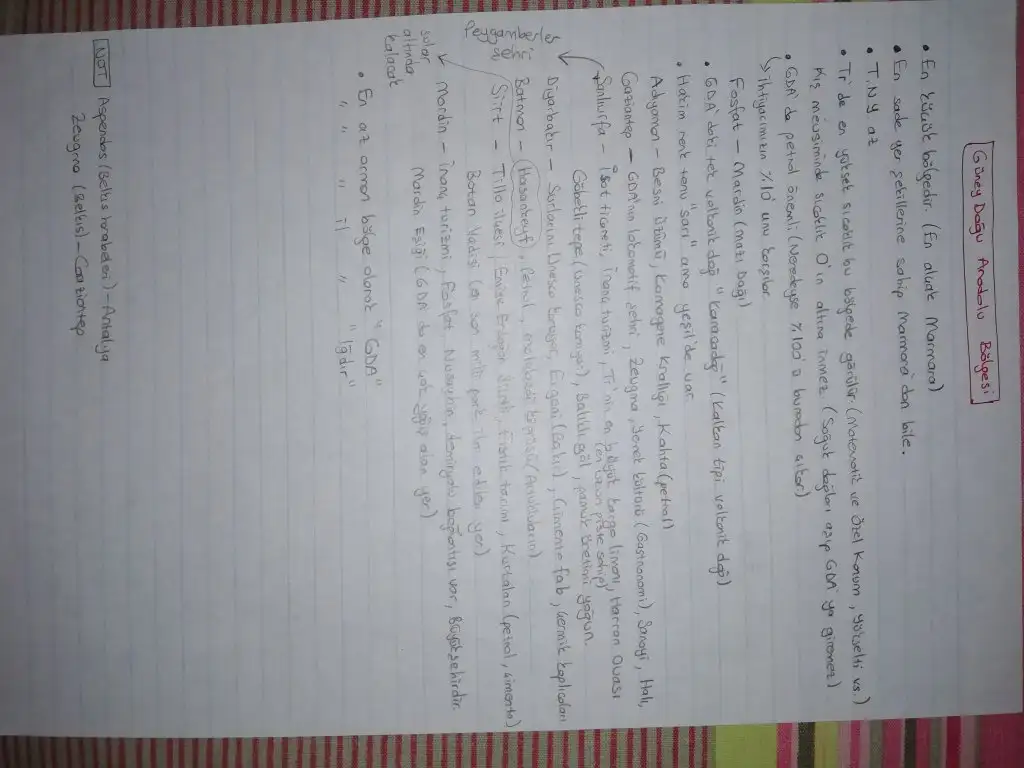 Güney Doğu Anadolu Bölgesi
• En küçük bölgedir. (En düşük Marmara)
• En sade yer şekillerine sahip Marmara'dan bile.
• T.N.Y az
• Tr'de en yüksek sıcaklık bu bölgede görülür (Matematik ve Özel Konum, yükselti vs.)
Kış mevsiminde sıcaklık 0'ın altına inmez. (Soğuk dağları aşıp GDA'ya giremez)
• GDA'da petrol önemli (Neredeyse %100'ü buradan çıkar)
↳ ihtiyacımızın %10'unu karşılar.
Fosfat - Mardin (mazı dağı)
• GDA'daki tek volkanik dağ "Karacadağ" (kalkan tipi volkanik dağ)
• Hakim renk tonu "sarı" ama yeşil'de var.
Adıyaman - Besni Üzümü, Komagene Krallığı, Kahta (petrol)
Gaziantep - GDA'nın lokomotif şehri, Zeugma, Yemek kültürü (Gastronomi), Sanayi, Halı,
Peygamberler şehri
Şanlıurfa - İsot ticareti, İnanç turizmi, Tr'nin en büyük kargo limanı, Harran Ovası
(en uzun piste sahip)
Göbeklitepe (Unesco koruyor), Balıklıgöl, pamuk üretimi yoğun.
Diyarbakır - Surlarını Unesco koruyor, Ergani (Bakır), Çimento fab, Çermik kaplıcaları
Batman - Hasankeyf, Petrol,
sular altında kalacak
Siirt - Tillo ilçesi, Fıstık tarımı, Kurtalan (petrol, çimento)
Botan Vadisi (en son milli park ilan edilen yer)
Mardin - İnanç turizmi, Fosfat, Nusaybin, demiryolu bağlantısı var, Büyükşehirdir.
Mardin Eşiği (GDA'da en çok yağış alan yer)
• En az orman bölge olarak "GDA"
" " " il " "Iğdır"
NOT Aspendos (Belkıs harabeleri) - Antalya
Zeugma (Belkıs) - Gaziantep